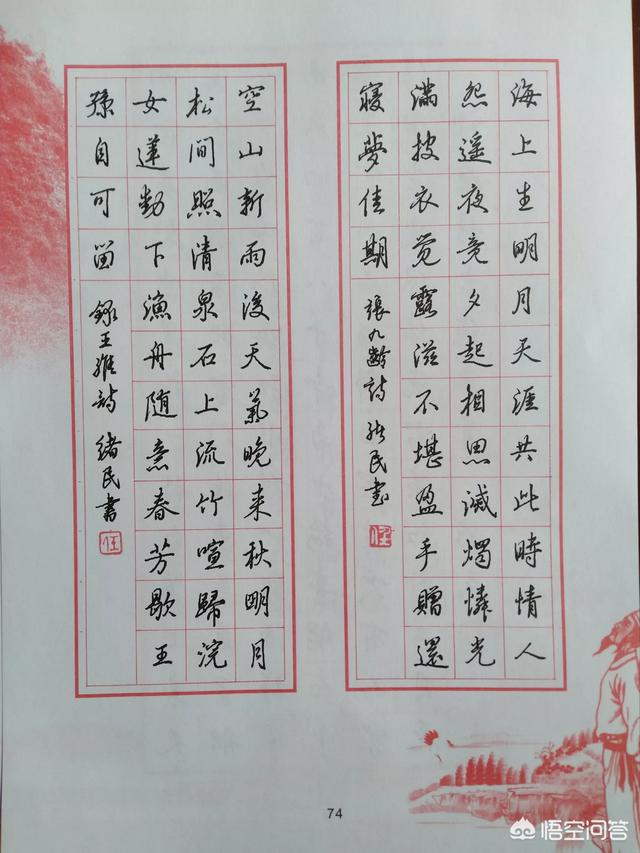 海上生明月天涯共此時情人
怨遥夜竟夕起相思滅燭憐光
滿披衣觉露滋不堪盈手贈還
寢夢佳期 張九齡詩 緒民書
任
空山新雨後天氣晚来秋明月
松间照清泉石上流竹喧歸浣
女莲動下漁舟随意春芳歇王
孫自可留 録王維詩 緒民書
任
74
悟空问答